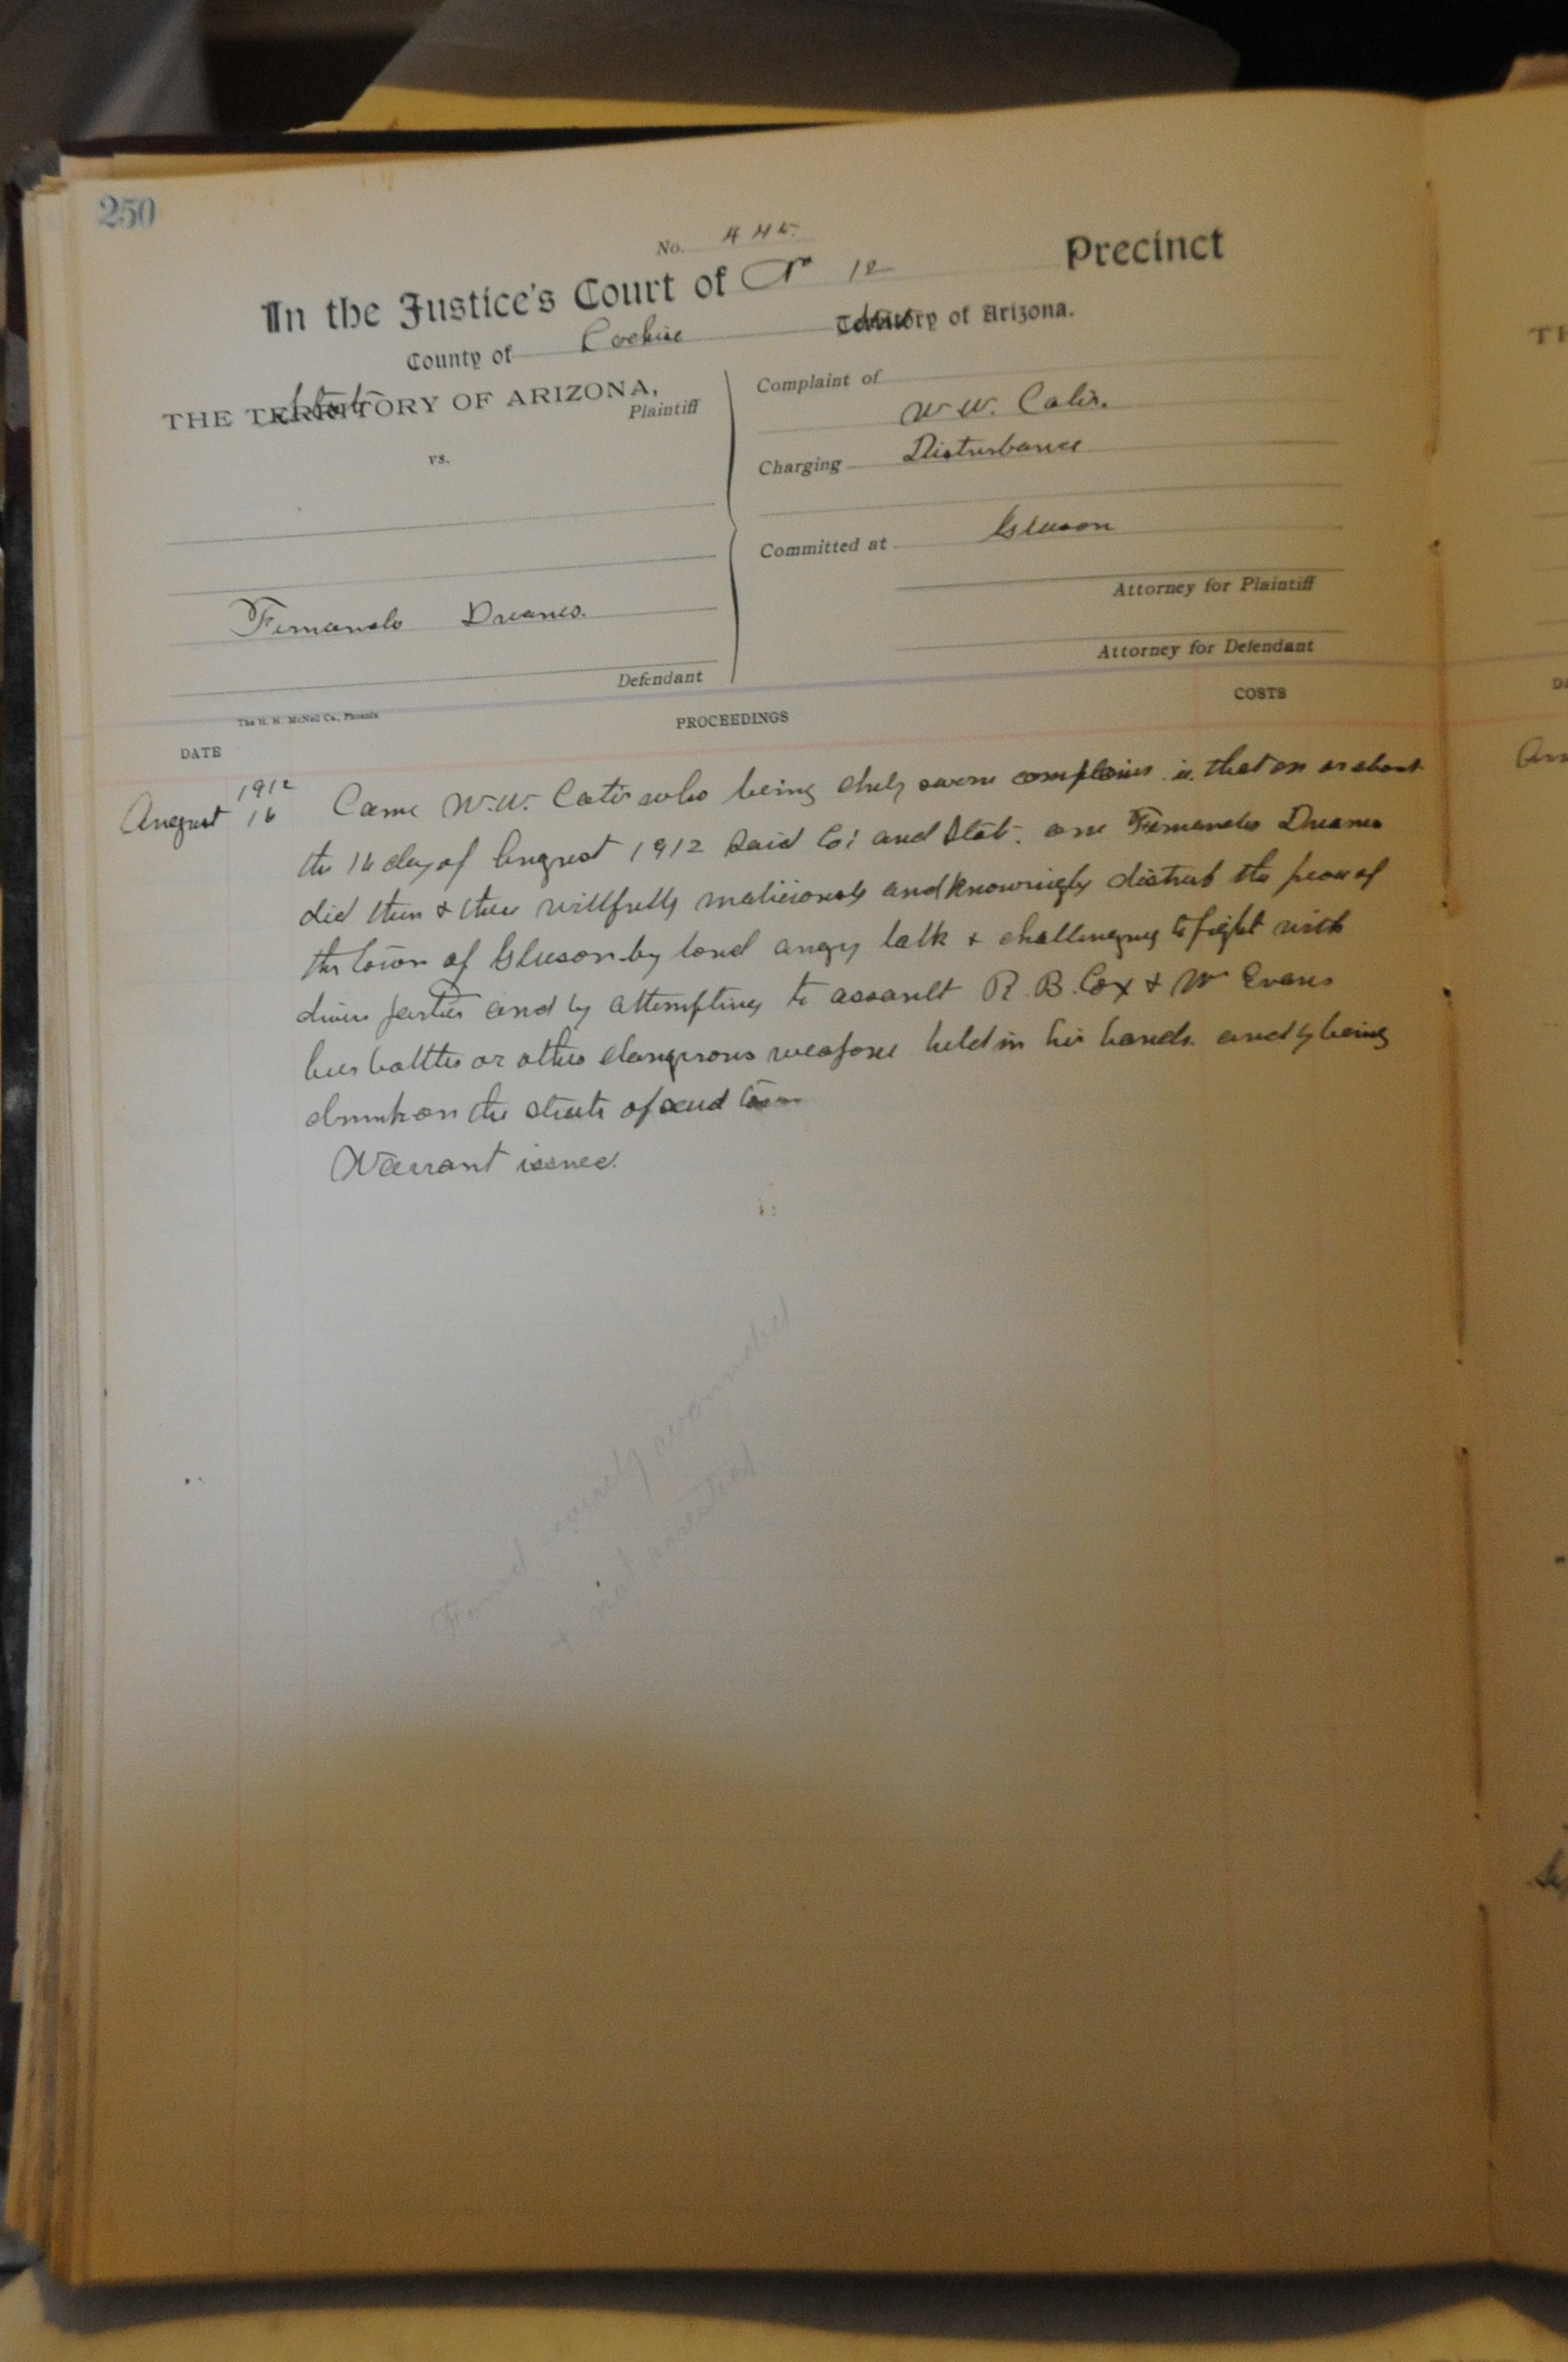 250
No. 445.
In the Justice's Court of No 12 Precinct
County of Cochise State Territory of Arizona.
THE State TERRITORY OF ARIZONA,
Plaintiff
vs.
Defendant
Complaint of
W. W.
Charging Disturbance
Committed at Gleeson
Attorney for Plaintiff
Attorney for Defendant
The H. H. McNeil Co., Phoenix
DATE PROCEEDINGS COSTS
1912
August 16 Came W. W. who being duly sworn complains is. that on or about
the 16 day of August 1912 said Co: and State. one Fernando
did then & there willfully maliciously and knowingly distrub the peace of
the town of Gleeson by loud angry talk & challenging to fight with
divers parties and by attempting to assault R. B. Cox & Wm Evans
beer bottles or other dangerous weapons held in his hands. and by being
drunk on the streets of said town
Warrant issued.
Found wounded
& not arrested